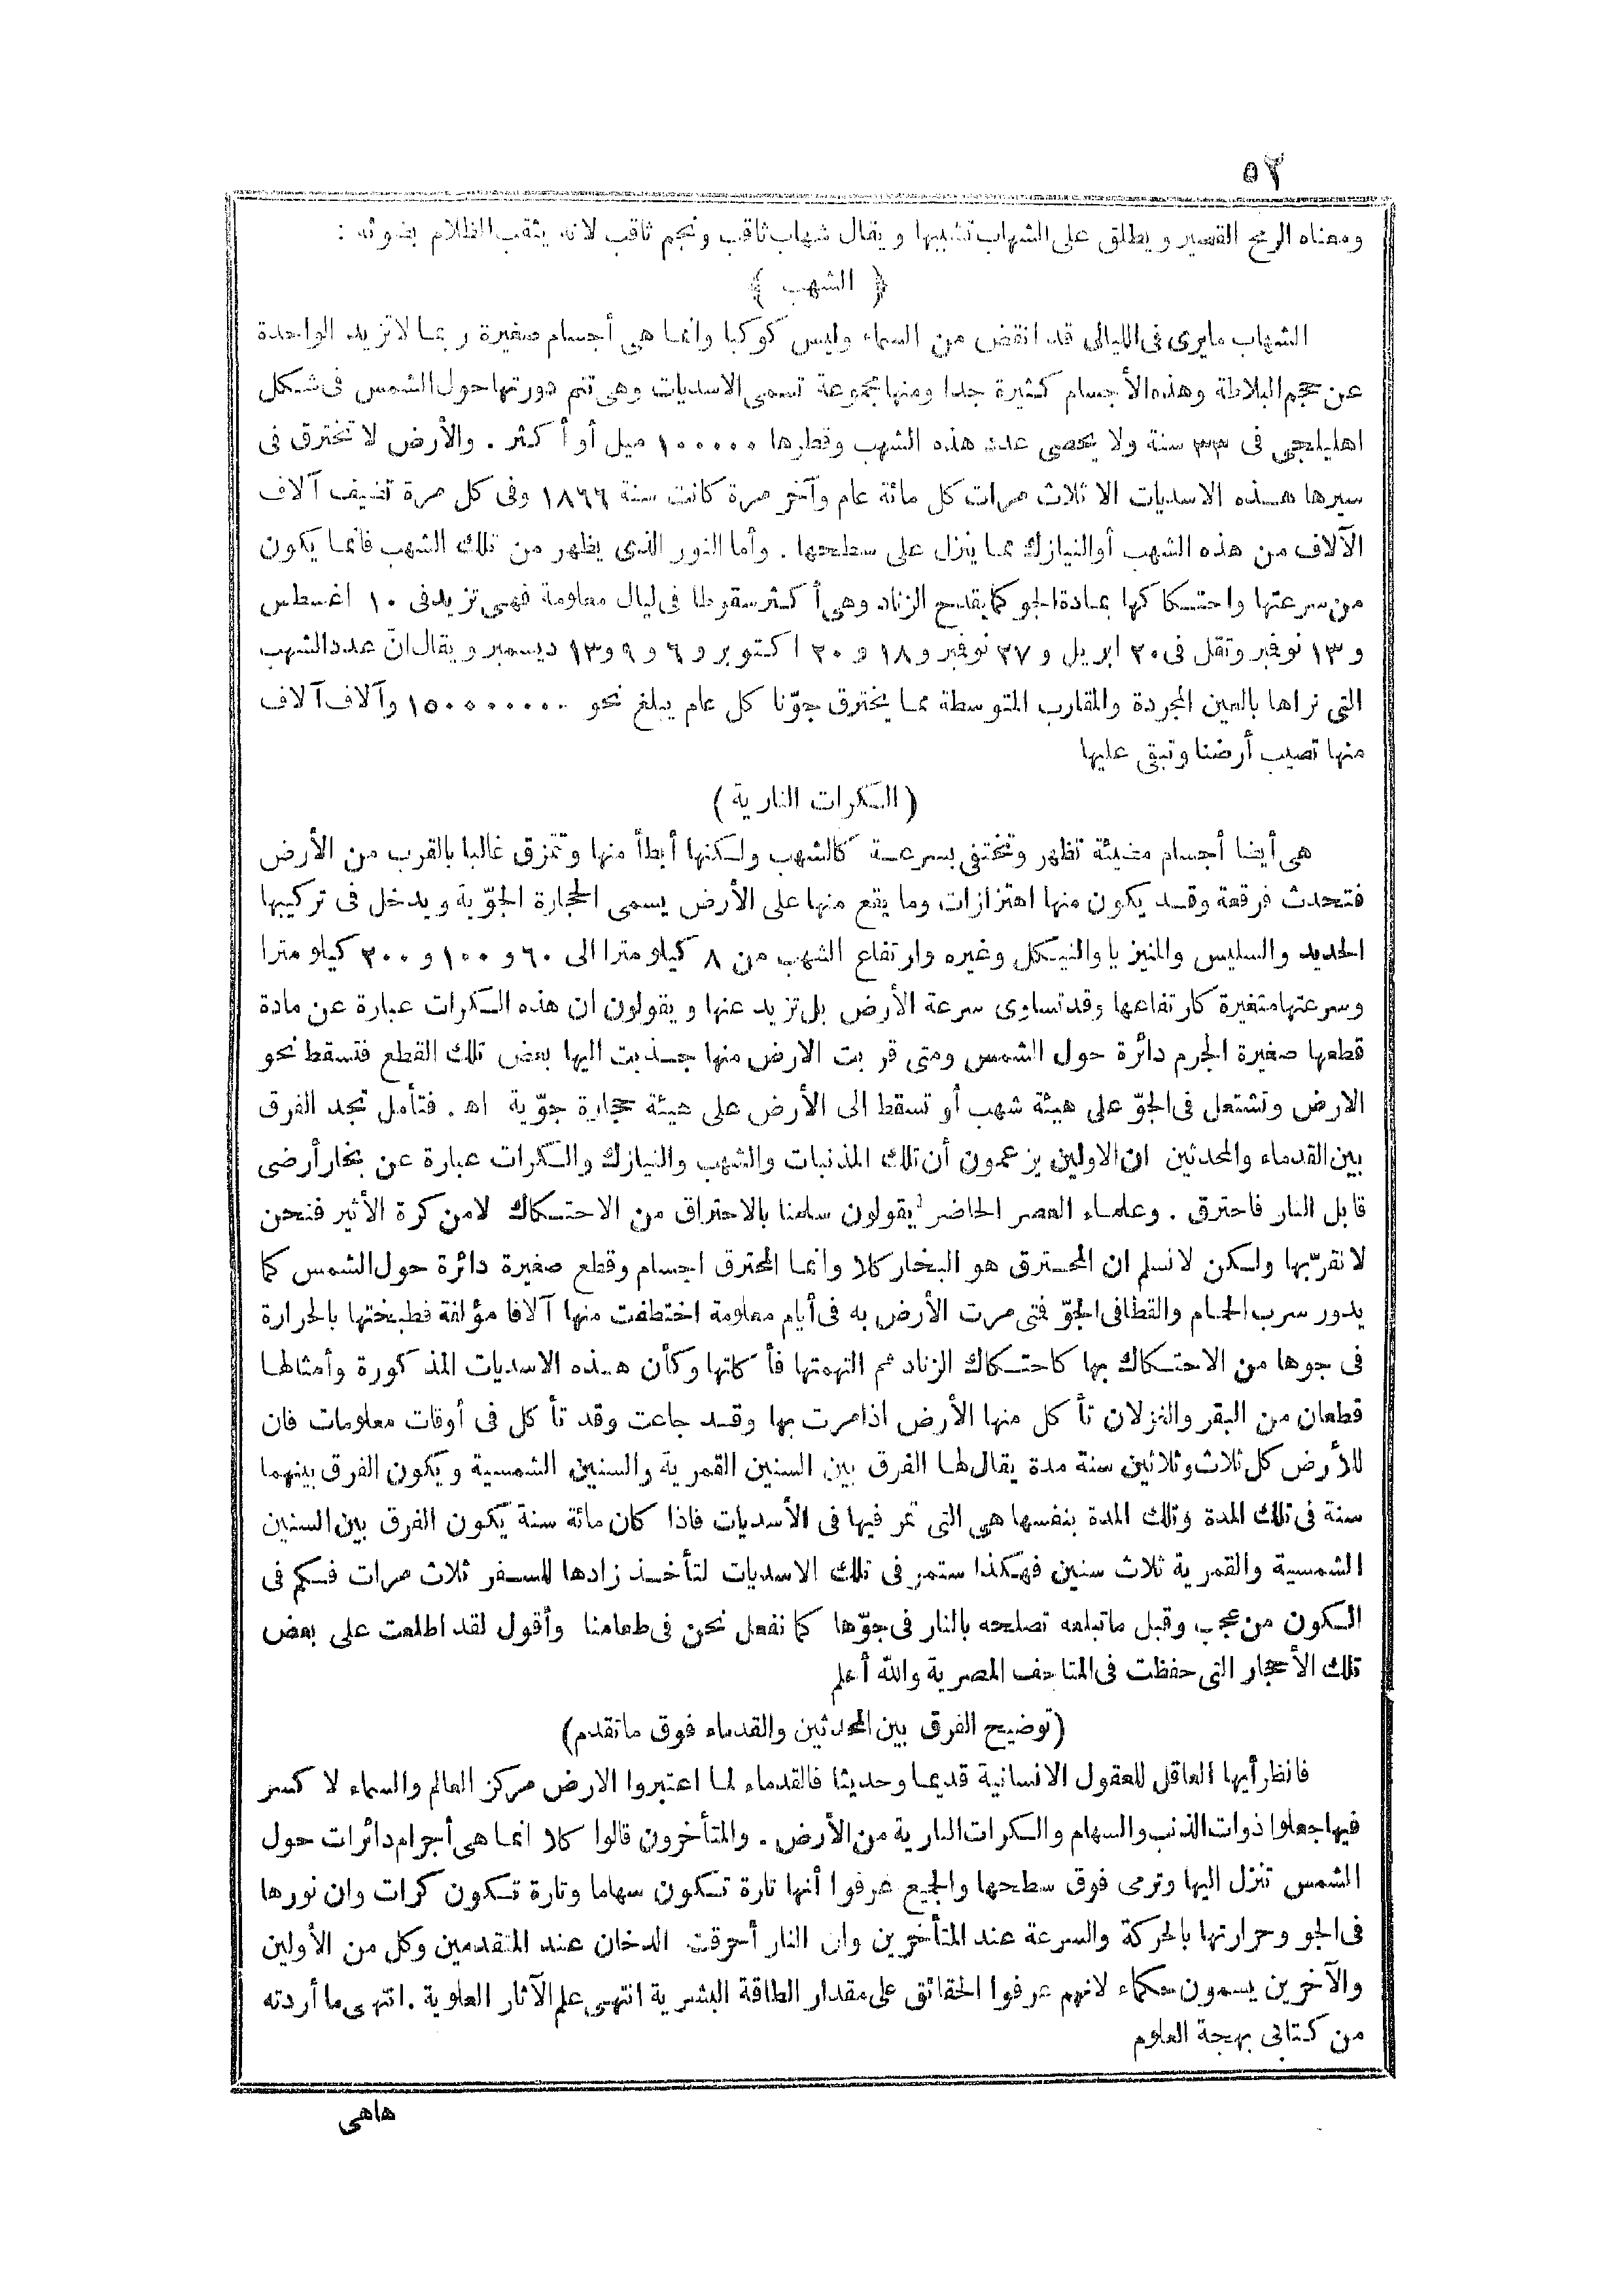 ٥٢
ومعناه الرمح القصير ويطلق على الشهاب تشبيها ويقال شهاب ثاقب ونجم ثاقب لانه يثقب الظلام بضوئه :
﴿ الشهب ﴾
الشهاب مايرى فى الليالى قد انقض من السماء وليس كوكبا وانما هى أجسام صغيرة ربما لاتزيد الواحدة
عن حجم البلاطة وهذه الأجسام كثيرة جدا ومنها مجموعة تسمى الاسديات وهى تتم دورتها حول الشمس فى شكل
اهليلجى فى ٣٣ سنة ولا يحصى عدد هذه الشهب وقطرها ١٠٠٠٠٠ ميل أو أكثر . والأرض لا تخترق فى
سيرها هذه الاسديات الا ثلاث مرات كل مائة عام وآخر مرة كانت سنة ١٨٦٦ وفى كل مرة تضيف آلاف
الآلاف من هذه الشهب أو النيازك مما ينزل على سطحها . وأما النور الذى يظهر من تلك الشهب فانما يكون
من سرعتها واحتكاكها بمادة الجو كما يقدح الزناد وهى أكثر سقوطا فى ليال معلومة فهى تزيد فى ١٠ اغسطس
و ١٣ نوفمبر وتقل فى ٢٠ ابريل و ٢٧ نوفمبر و ١٨ و ٢٠ اكتوبر و ٦ و ٩ و ١٣ ديسمبر ويقال انّ عدد الشهب
التى نراها بالعين المجردة والمقارب المتوسطة مما يخترق جوّنا كل عام يبلغ نحو ١٥٠٠٠٠٠٠٠ وآلاف آلاف
منها تصيب أرضنا وتبقى عليها
(الكرات النارية)
هى أيضا أجسام مضيئة تظهر وتختفى بسرعة كالشهب ولكنها أبطأ منها وتتمزق غالبا بالقرب من الأرض
فتحدث فرقعة وقد يكون منها اهتزازات وما يقع منها على الأرض يسمى الحجارة الجوّية ويدخل فى تركيبها
الحديد والسليس والمنيزيا والنيكل وغيره وارتفاع الشهب من ٨ كيلو مترا الى ٦٠ و ١٠٠ و ٢٠٠ كيلو مترا
وسرعتها متغيرة كارتفاعها وقد تساوى سرعة الأرض بل تزيد عنها ويقولون ان هذه الكرات عبارة عن مادة
قطعها صغيرة الجرم دائرة حول الشمس ومتى قربت الارض منها جذبت اليها بعض تلك القطع فتسقط نحو
الارض وتشتعل فى الجوّ على هيئة شهب أو تسقط الى الأرض على هيئة حجارة جوّية اه . فتأمل تجد الفرق
بين القدماء والمحدثين ان الاولين يزعمون أن تلك المذنبات والشهب والنيازك والكرات عبارة عن بخار أرضى
قابل النار فاحترق . وعلماء العصر الحاضر يقولون سلمنا بالاحتراق من الاحتكاك لا من كرة الأثير فنحن
لا نقرّبها ولكن لا نسلم ان المحترق هو البخار كلا وانما المحترق اجسام وقطع صغيرة دائرة حول الشمس كما
يدور سرب الحمام والقطا فى الجوّ فمتى مرت الأرض به فى أيام معلومة اختطفت منها آلافا مؤلفة فطبختها بالحرارة
فى جوها من الاحتكاك بها كاحتكاك الزناد ثم التهمتها فأكلتها وكأن هذه الاسديات المذكورة وأمثالها
قطعان من البقر والغزلان تأكل منها الأرض اذا مرت بها وقد جاعت وقد تأكل فى أوقات معلومات فان
للأرض كل ثلاث وثلاثين سنة مدة يقال لها الفرق بين السنين القمرية والسنين الشمسية ويكون الفرق بينهما
سنة فى تلك المدة وتلك المدة بنفسها هى التى تمر فيها فى الأسديات فاذا كان مائة سنة يكون الفرق بين السنين
الشمسية والقمرية ثلاث سنين فهكذا ستمر فى تلك الاسديات لتأخذ زادها للسفر ثلاث مرات فكم فى
الكون من عجب وقبل ما تبلعه تصلحه بالنار فى جوّها كما نفعل نحن فى طعامنا وأقول لقد اطلعت على بعض
تلك الأحجار التى حفظت فى المتاحف المصرية والله أعلم
(توضيح الفرق بين المحدثين والقدماء فوق ماتقدم)
فانظر أيها العاقل للعقول الانسانية قديما وحديثا فالقدماء لما اعتبروا الارض مركز العالم والسماء لا كسر
فيها جعلوا ذوات الذنب والسهام والكرات النارية من الأرض . والمتأخرون قالوا كلا انما هى أجرام دائرات حول
الشمس تنزل اليها وترمى فوق سطحها والجميع عرفوا أنها تارة تكون سهاما وتارة تكون كرات وان نورها
فى الجو وحرارتها بالحركة والسرعة عند المتأخرين وان النار أحرقت الدخان عند المتقدمين وكل من الأولين
والآخرين يسمون حكماء لانهم عرفوا الحقائق على مقدار الطاقة البشرية انتهى علم الآثار العلوية . انتهى ما أردته
من كتابى بهجة العلوم
هاهى